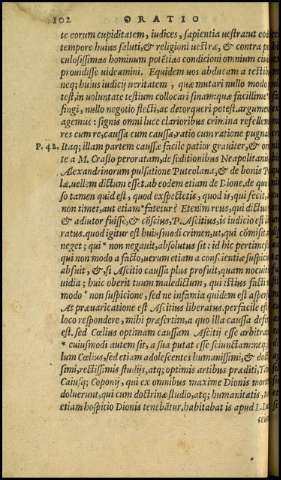 102 ORATIO
te eorum cupiditatem, iudices, sapientia uestra ut eo
tempore huius saluti, & religioni uestræ, & contra
culosissimas hominum potētias condicioni omnium
prouidisse uideamini. Equidem uos abducam a
neq; huius iudicij ueritatem, quæ mutari nullo
test, in uoluntate testium collocari sinam: quæ facillime
fingi, nullo negotio flecti, ac detorqueri potest. argumē
agemus: signis omni luce clarioribus crimina refellem
res cum re, caussa cum caussa, ratio cum ratione pugnab
P. 42. Itaq; illam partem caussæ facile patior grauiter, & orn
te a M. Crasso peroratam, de seditionibus Neapolitanis,
Alexandrinorum pulsatione Puteolana, & de bonis
læ, uellem dictum esset. ab eodem etiam de Dione. de quo
so tamen quid est, quod exspectetis, quod is, qui fecit,
non timet, aut etiam* fatetur? est enim
& adiutor fuisse, & conscius, P. Ascitius, is iudicio est
ratus. quod igitur est huiusmodi crimen, ut, qui cōmise
neget; qui* non negauit, absolutus sit: id hic pertimesc
qui non modo a facto, uerum etiam a conscientiæ suspici
abfuit, &, si Ascitio caussa plus profuit, quam nocuit
uidia; huic oberit tuum maledictum, qui istius facti
modo* non suspicione, sed ne infamia quidem est aspers
At præuaricatione est Ascitius liberatus. perfacile est
loco respondere, mihi præsertim, a quo illa caussa
est. sed Cælius optimam caussam Ascitij esse arbitra
* cuiusmodi autem sit, a sua putat esse seiunctam: neq;
lum Cælius, sed etiam adolescentes humanissimi, & do
simi, rectissimis studijs, atq; optimis artibus præditi,
Caiusq; Coponij, qui ex omnibus maxime Dionis mort
doluerunt, qui cum doctrinæ studio, atq; humanitatis,
etiam hospitio Dionis tenebātur. habitabat is apud